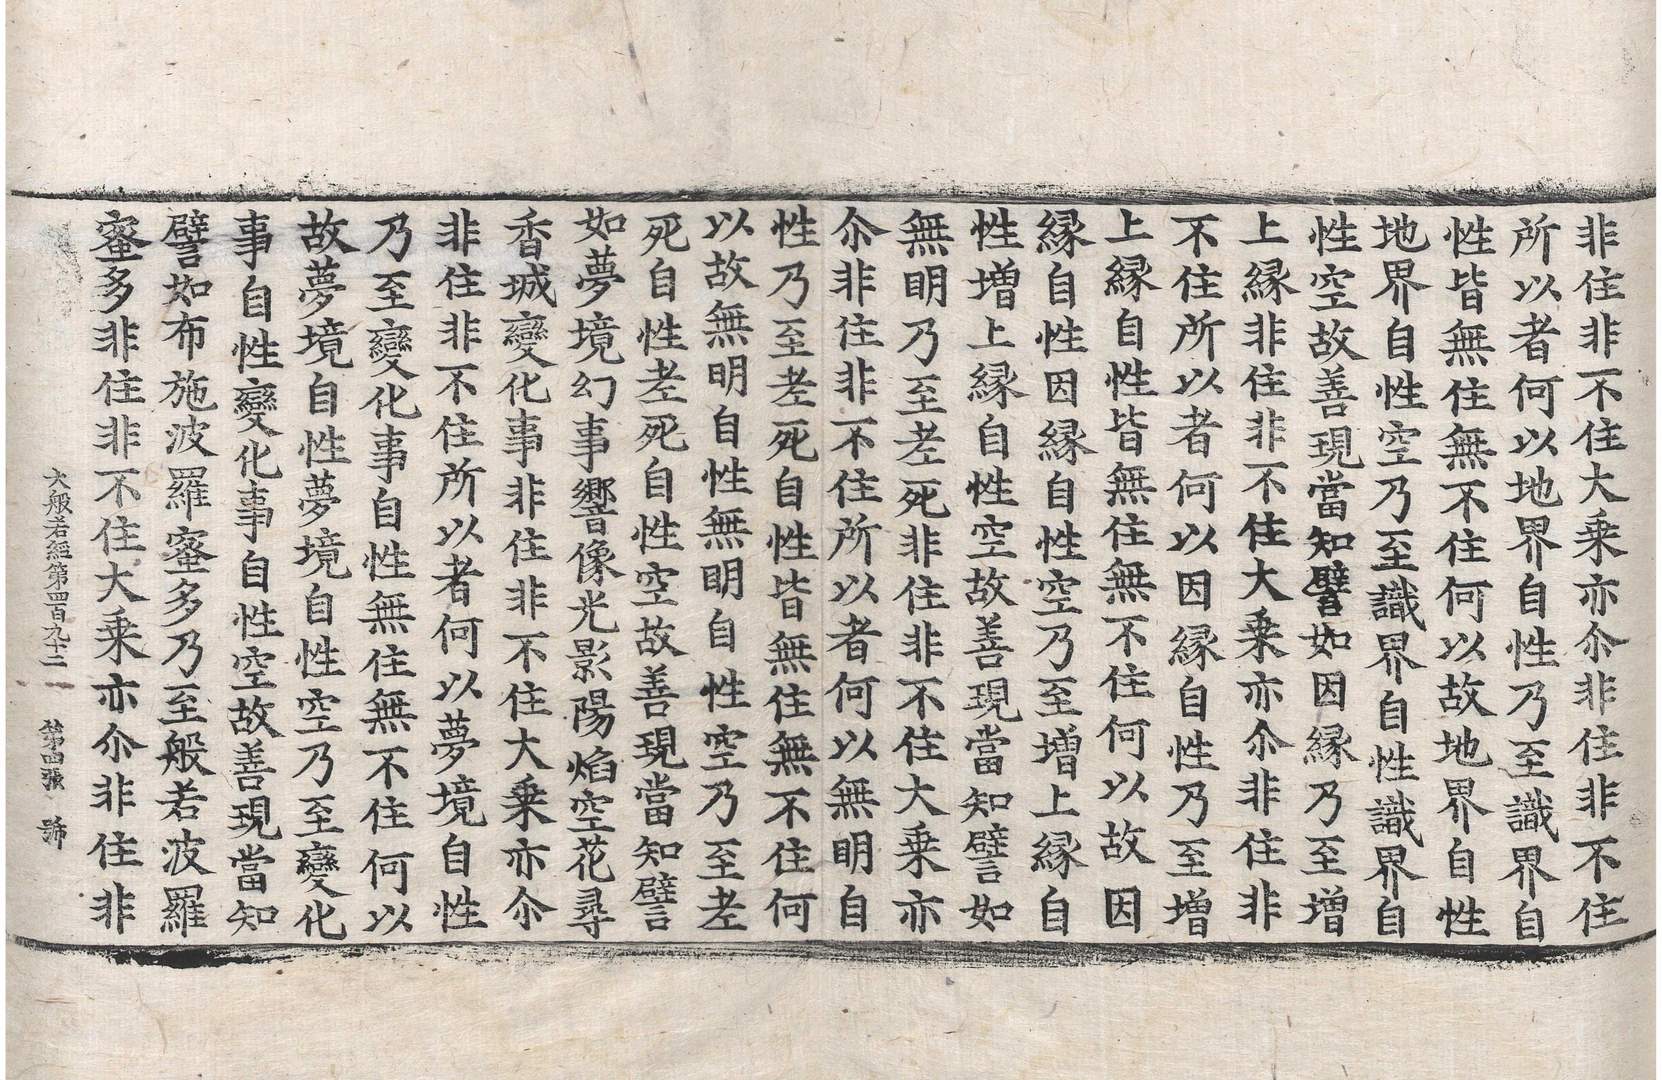 非住非不住大乗亦尒非住非不住
所以者何以地界自性乃至識界自
性皆無住無不住何以故地界自性
地界自性空乃至識界自性識界自
性空故善現當知譬如因縁乃至增
上縁非住非不住大乗亦尒非住非
不住所以者何以因縁自性乃至增
上縁自性皆無住無不住何以故因
縁自性因縁自性空乃至增上縁自
性增上縁自性空故善現當知譬如
無明乃至老死非住非不住大乗亦
尒非住非不住所以者何以無明自
性乃至老死自性皆無住無不住何
以故無明自性無明自性空乃至老
死自性老死自性空故善現當知譬
如夢境幻事響像光影陽焰空花尋
香城變化事非住非不住大乗亦尒
非住非不住所以者何以夢境自性
乃至變化事自性無住無不住何以
故夢境自性夢境自性空乃至變化
事自性變化事自性空故善現當知
譬如布施波羅蜜多乃至般若波羅
蜜多非住非不住大乗亦尒非住非
大般若經第四百九十二 第四張 師